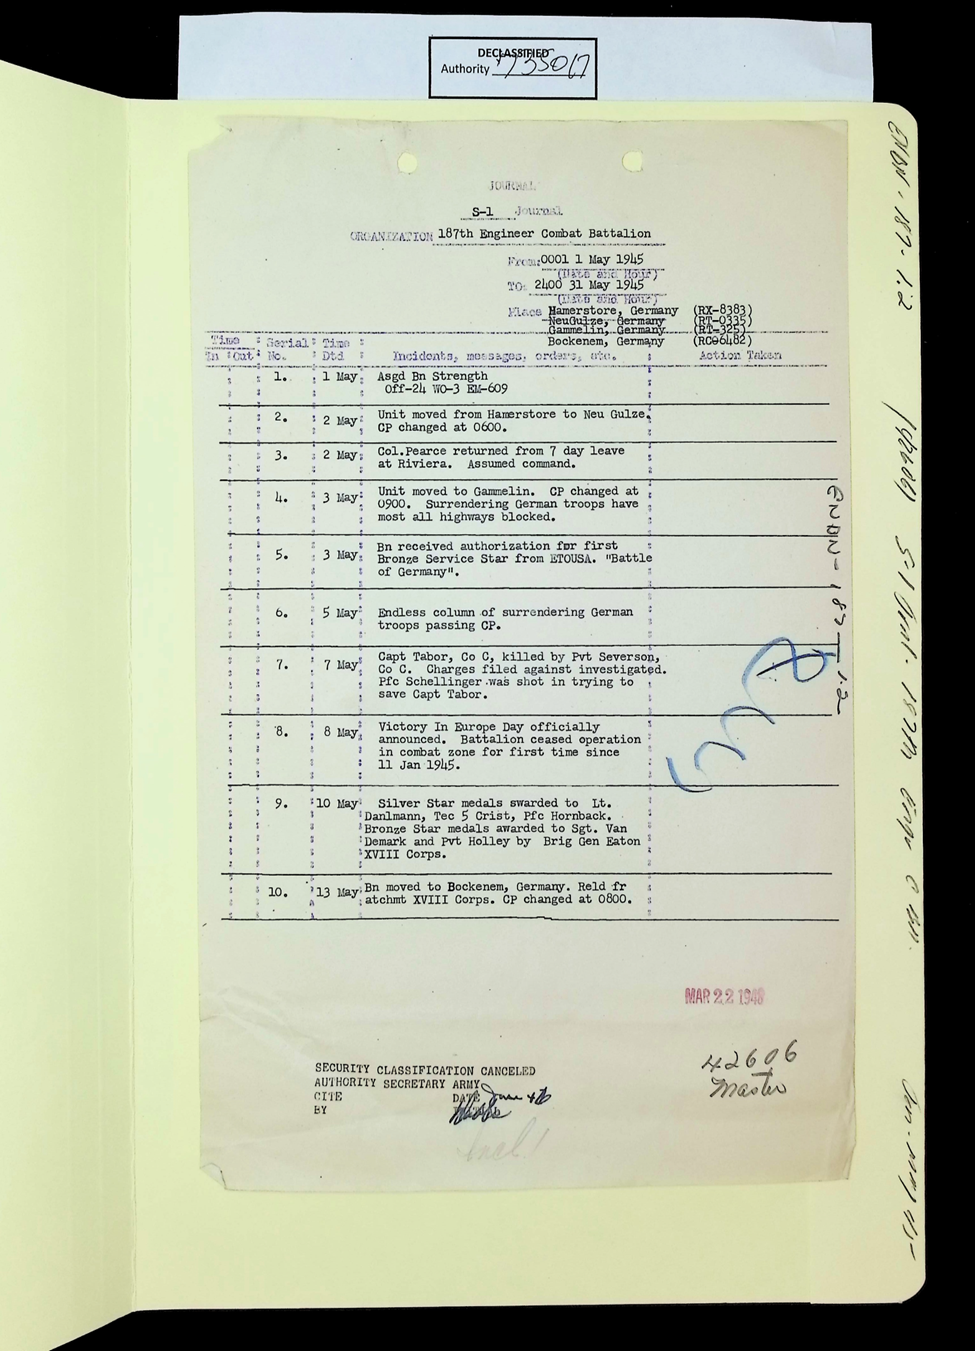 DECLASSIFIED
Authority 735017
JOURNAL
S-1 Journal
ORGANIZATION 187th Engineer Combat Battalion
From: 0001 1 May 1945
(Date and Hour)
TO: 2400 31 May 1945
(Date and Hour)
Place Hamerstore, Germany (RX-8383)
NeuGulze, Germany (RT-0335)
Gammelin, Germany (RT-325)
Bockenem, Germany (RC06482)
Time In Out Serial No. Time Dtd Incidents, messages, orders, etc. Action Taken
1. 1 May Asgd Bn Strength
Off-24 WO-3 EM-609
2. 2 May Unit moved from Hamerstore to Neu Gulze.
CP changed at 0600.
3. 2 May Col.Pearce returned from 7 day leave
at Riviera. Assumed command.
4. 3 May Unit moved to Gammelin. CP changed at
0900. Surrendering German troops have
most all highways blocked.
5. 3 May Bn received authorization for first
Bronze Service Star from ETOUSA. "Battle
of Germany".
6. 5 May Endless column of surrendering German
troops passing CP.
7. 7 May Capt Tabor, Co C, killed by Pvt Severson,
Co C. Charges filed against investigated.
Pfc Schellinger was shot in trying to
save Capt Tabor.
8. 8 May Victory In Europe Day officially
announced. Battalion ceased operation
in combat zone for first time since
11 Jan 1945.
9. 10 May Silver Star medals swarded to Lt.
Danlmann, Tec 5 Crist, Pfc Hornback.
Bronze Star medals awarded to Sgt. Van
Demark and Pvt Holley by Brig Gen Eaton
XVIII Corps.
10. 13 May Bn moved to Bockenem, Germany. Reld fr
atchmt XVIII Corps. CP changed at 0800.
MAR 22 1948
42606
Master
SECURITY CLASSIFICATION CANCELED
AUTHORITY SECRETARY ARMY
CITE DATE June 46
BY
Incl 1
ENBN-187-1.2
ENBN-187-1.2
(42606) S-1 Jrnl. 187th Engr C Bn.